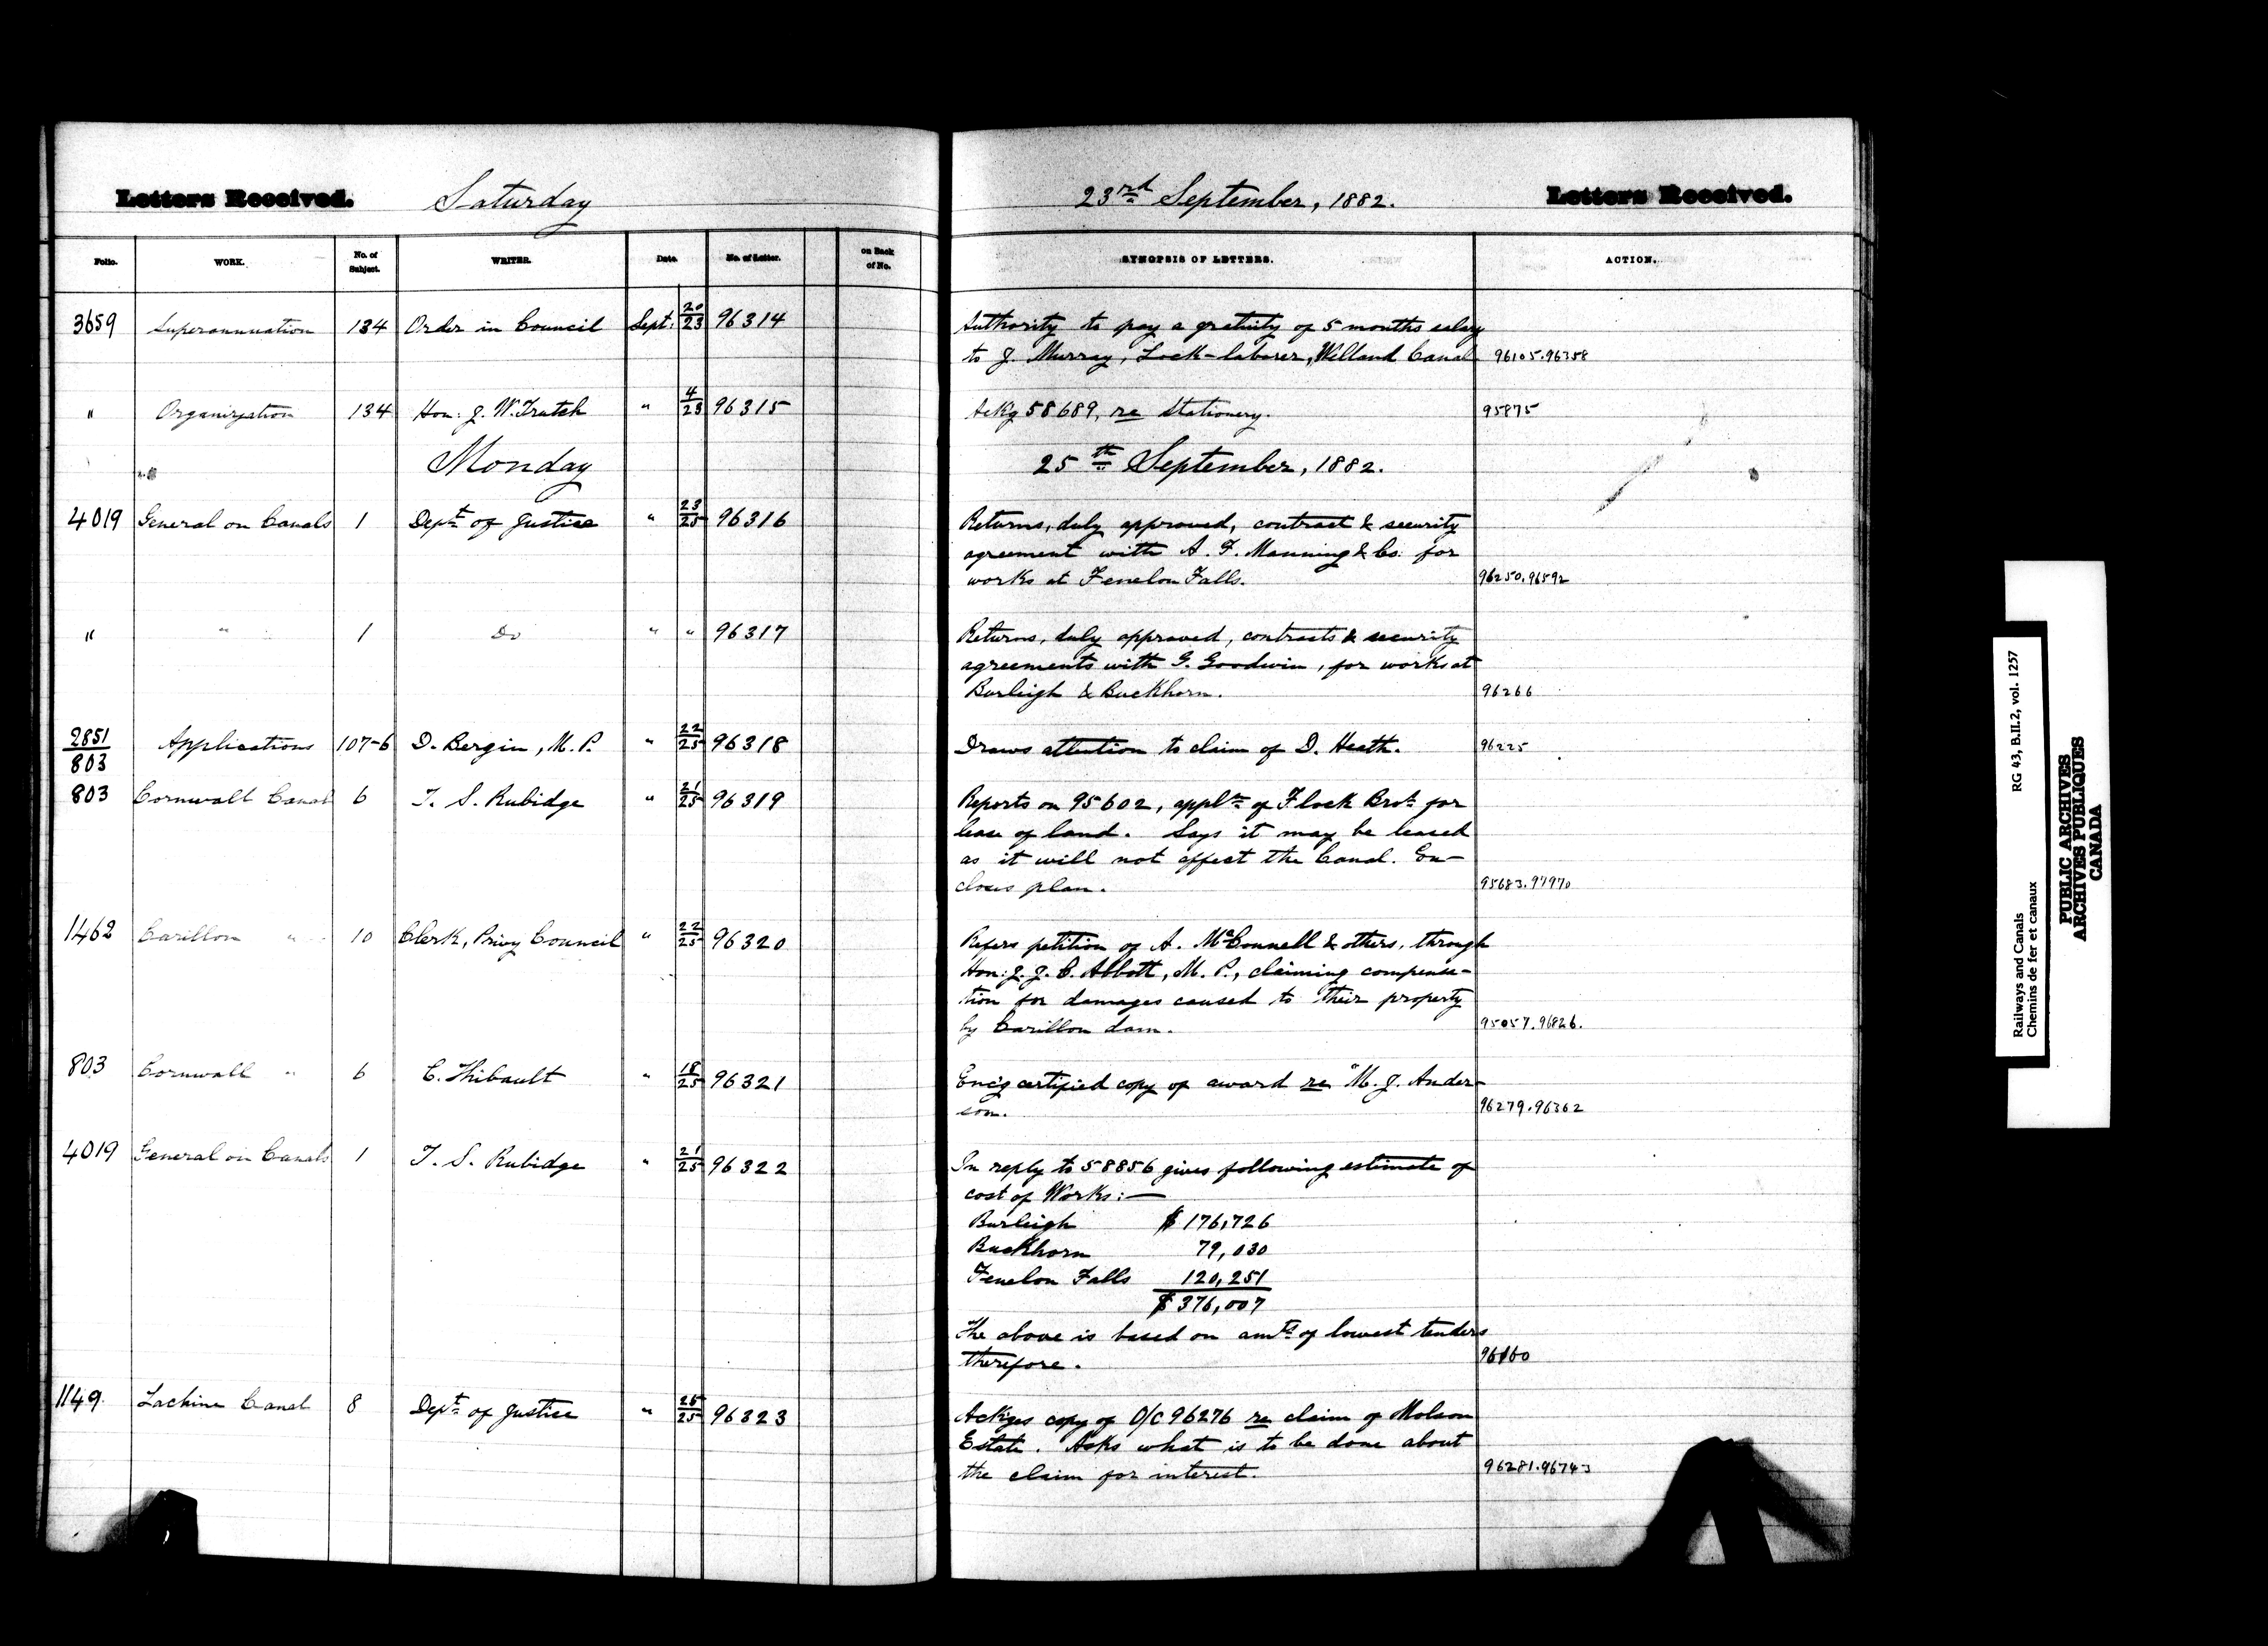 Letters Received. Saturday 23rd September, 1882. Letters Received.
Folio. WORK. No. of Subject. WRITER. Date. No. of Letter. on Back of No. SYNOPSIS OF LETTERS. ACTION.
3659 Superannuation 134 Order in Council Sept: 20/23 96314 Authority to pay a gratuity of 5 months salary
to J. Murray, Lock-laborer, Welland Canal 96105.96358
" Organization 134 Hon: J. W. Trutch " 4/23 96315 Ackg 58689, re stationery. 95875
Monday 25th September, 1882.
4019 General on Canals 1 Dept of Justice " 23/25 96316 Returns, duly approved, contract & security
agreement with A. F. Manning & Co. for
works at Fenelon Falls. 96250.96592
" " 1 Do " " 96317 Returns, duly approved, contracts & security
agreements with G. Goodwin, for works at
Burleigh & Buckhorn. 96266
2851/803 Applications 107-6 D. Bergin, M.P. " 22/25 96318 Draws attention to claim of D. Heath. 96225
803 Cornwall Canal 6 T. S. Rubidge " 21/25 96319 Reports on 95602, appltn of Flock Bros. for
lease of land. Says it may be leased
as it will not affect the Canal. En-
closes plan. 95683.97970
1462 Carillon " 10 Clerk, Privy Council " 22/25 96320 Refers petition of A. McConnell & others, through
Hon: J. J. C. Abbott, M.P., claiming compensa-
tion for damages caused to their property
by Carillon dam. 95057.96826.
803 Cornwall " 6 C. Thibault " 18/25 96321 Enc'g certified copy of award re M. J. Ander-
son. 96279.96362
4019 General on Canals 1 T. S. Rubidge " 21/25 96322 In reply to 58856 gives following estimate of
cost of Works:—
Burleigh $ 176,726
Buckhorn 79,030
Fenelon Falls 120,251
$ 376,007
The above is based on amts of lowest tenders
therefore. 96160
1149 Lachine Canal 8 Dept of Justice " 25/25 96323 Ackges copy of O/C 96276 re claim of Molson
Estate. Asks what is to be done about
the claim for interest. 96281.96743
Railways and Canals RG 43, B.II.2, vol. 1257
Chemins de fer et canaux
PUBLIC ARCHIVES
ARCHIVES PUBLIQUES
CANADA